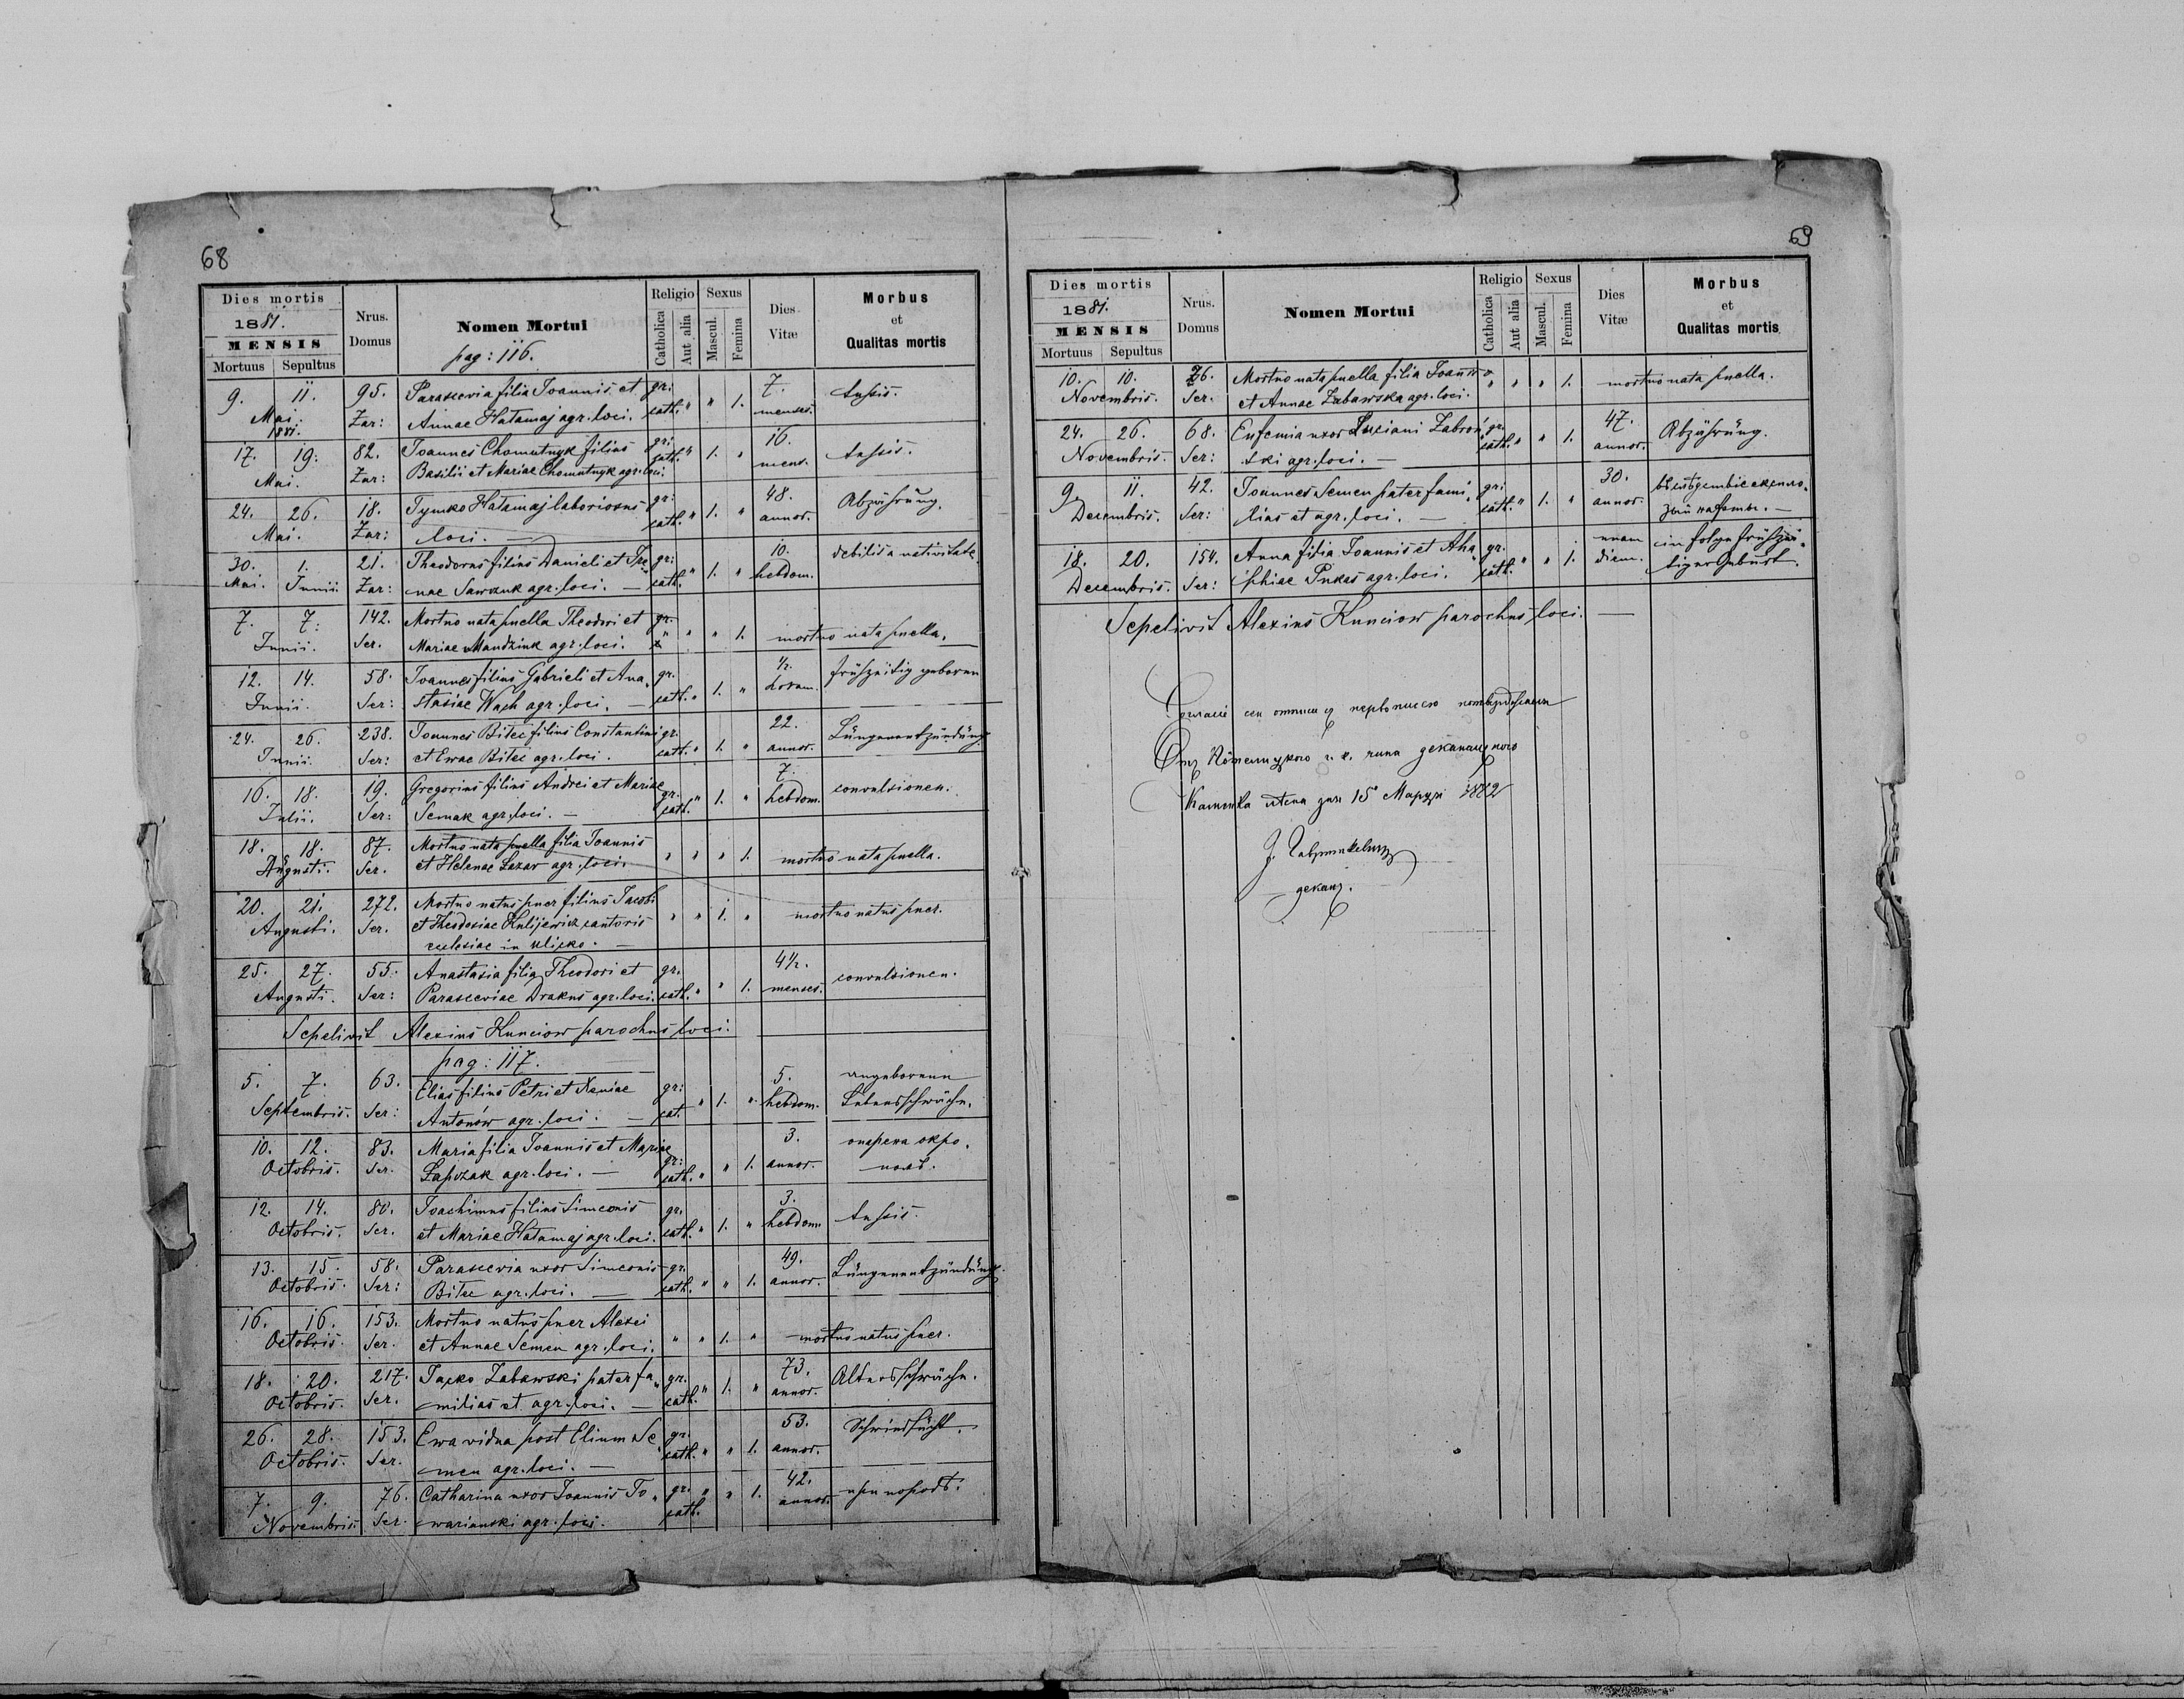 68
Dies mortis
1881.
MENSIS
Mortuus Sepultus
Nrus. Domus
Nomen Mortui
pag: 116.
Religio
Catholica
Aut alia
Sexus
Mascul.
Femina
Dies Vitæ
Morbus
et
Qualitas mortis
9. 11. 95. Parascevia filia Joannis et gr: 7. tussis.
Mai. 1881. Zar: Annae Hatamaj agr. loci. cath. " " 1. menses.
17. 19. 82. Joannes Chomutnyk filius gr: 16. tussis.
Mai. Zar: Basilii et Mariae Chomutnyk agr. loci. cath. " 1. " mens.
24. 26. 18. Tymko Hatamaj laboriosus gr: 48. Abzährung.
Mai. Zar: loci. — cath. " 1. " annor.
30. 1. 21. Theodorus filius Danieli et Ire„ gr: 10. debilis a nativitate
Mai. Junii. Zar: nae Sawczuk agr. loci. — cath. " 1. " hebdom.
7. 7. 142. Mortuo nata puella Theodori et gr.
Junii. Ser. Mariae Mandziuk agr. loci. " " " 1. mortuo nata puella.
12. 14. 58. Joannes filius Gabrieli et Ana„ gr. ½. frühzeitig geboren
Junii. Ser: stasiae Wach agr. loci. — cath. " 1. " horam.
24. 26. 238. Joannes Bitec filius Constantini gr. 22. Lungenentzündung
Junii. Ser: et Ewae Bitec agr. loci. cath. " 1. " annor.
16. 18. 19. Gregorius filius Andrei et Mariae gr. 7. convulsionen.
Julii. Ser: Semak agr. loci. — cath. " 1. " hebdom.
18. 18. 87. Mortuo nata puella filia Joannis
Augusti. Ser. et Helenae Lazar agr. loci. " " " 1. mortuo nata puella.
20. 21. 272. Mortuo natus puer filius Jacobi
Augusti. Ser. et Theodosiae Kulijewicz cantoris " " 1. " mortuo natus puer.
eclesiae in
25. 27. 55. Anastasia filia Theodori et gr. 4½. convulsionen.
Augusti. Ser: Parasceviae Drakus agr. loci. cath. " " 1. menses.
Sepelivit Alexius Kunciow parochus loci.
pag: 117.
5. 7. 63. Elias filius Petri et Xeniae gr: 5. angeborene
Septembris. Ser: Antonów agr. loci. — cat. " 1. " hebdom. Lebensschwäche.
10. 12. 83. Maria filia Joannis et Mariae gr: 3. опарена окро„
Octobris. Ser. Łapczak agr. loci. — cath. " " 1. annor. помъ.
12. 14. 80. Joachimus filius Simeonis gr. 3. tussis.
Octobris. Ser. et Mariae Hatamaj agr. loci. cath. " 1. " hebdom.
13. 15. 58. Parascevia uxor Simeonis gr. 49. Lungenentzündung.
Octobris. Ser: Bitec agr. loci. — cath. " " 1. annor.
16. 16. 153. Mortuo natus puer Alexei
Octobris. Ser. et Annae Semen agr. loci. " " 1. " mortuo natus puer.
18. 20. 217. Jacko Zabawski pater fa„ gr. 73. Altersschwäche.
Octobris. Ser. milias et agr. loci. — cath. " 1. " annor.
26. 28. 153. Ewa vidua post Elium Se„ gr. 53. Schwindsucht.
Octobris. Ser. men agr. loci. — cath. " " 1. annor.
7. 9. 76. Catharina uxor Joannis To„ gr. 42. при породѣ.
Novembris. Ser. warianski agr. loci. cath. " " 1. annor.
69
Dies mortis
1881.
MENSIS
Mortuus Sepultus
Nrus. Domus
Nomen Mortui
Religio
Catholica
Aut alia
Sexus
Mascul.
Femina
Dies Vitæ
Morbus
et
Qualitas mortis
10. 10. 26. Mortuo nata puella filia Joannis
Novembris. Ser. et Annae Zabawska agr. loci. " " " 1. mortuo nata puella.
24. 26. 68. Eufemia uxor Luciani Zabron„ gr. 47. Abzährung.
Novembris. Ser: ski agr. loci. — cath. " " 1. annor.
9. 11. 42. Joannes Semen pater fami„ gr: 30.
Decembris. Ser: lias et agr. loci. — cath. " 1. " annor.
18. 20. 154. Anna filia Joannis et Aha„ gr. unam in folge frühzei„
Decembris. Ser: phiae Pukas agr. loci. cath. " " 1. diem. tiger Geburt.
Sepelivit Alexius Kunciow parochus loci. —
Отъ деканального
дня 15 Марця 1882
деканъ.